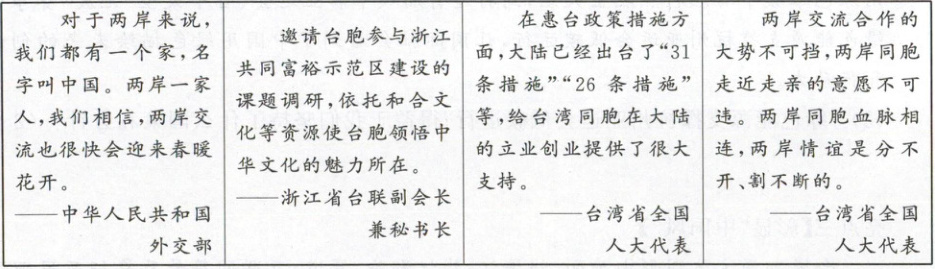 对于两岸来说，
我们都有一个家，名
字叫中国。两岸一家
人，我们相信，两岸交
流也很快会迎来春暖
花开。
——中华人民共和国
外交部
邀请台胞参与浙江
共同富裕示范区建设的
课题调研，依托和合文
化等资源使台胞领悟中
华文化的魅力所在。
——浙江省台联副会长
兼秘书长
在惠台政策措施方
面，大陆已经出台了“31
条措施”“26 条措施”
等，给台湾同胞在大陆
的立业创业提供了很大
支持。
——台湾省全国
人大代表
两岸交流合作的
大势不可挡，两岸同胞
走近走亲的意愿不可
违。两岸同胞血脉相
连，两岸情谊是分不
开、割不断的。
台湾省全国
人大代表